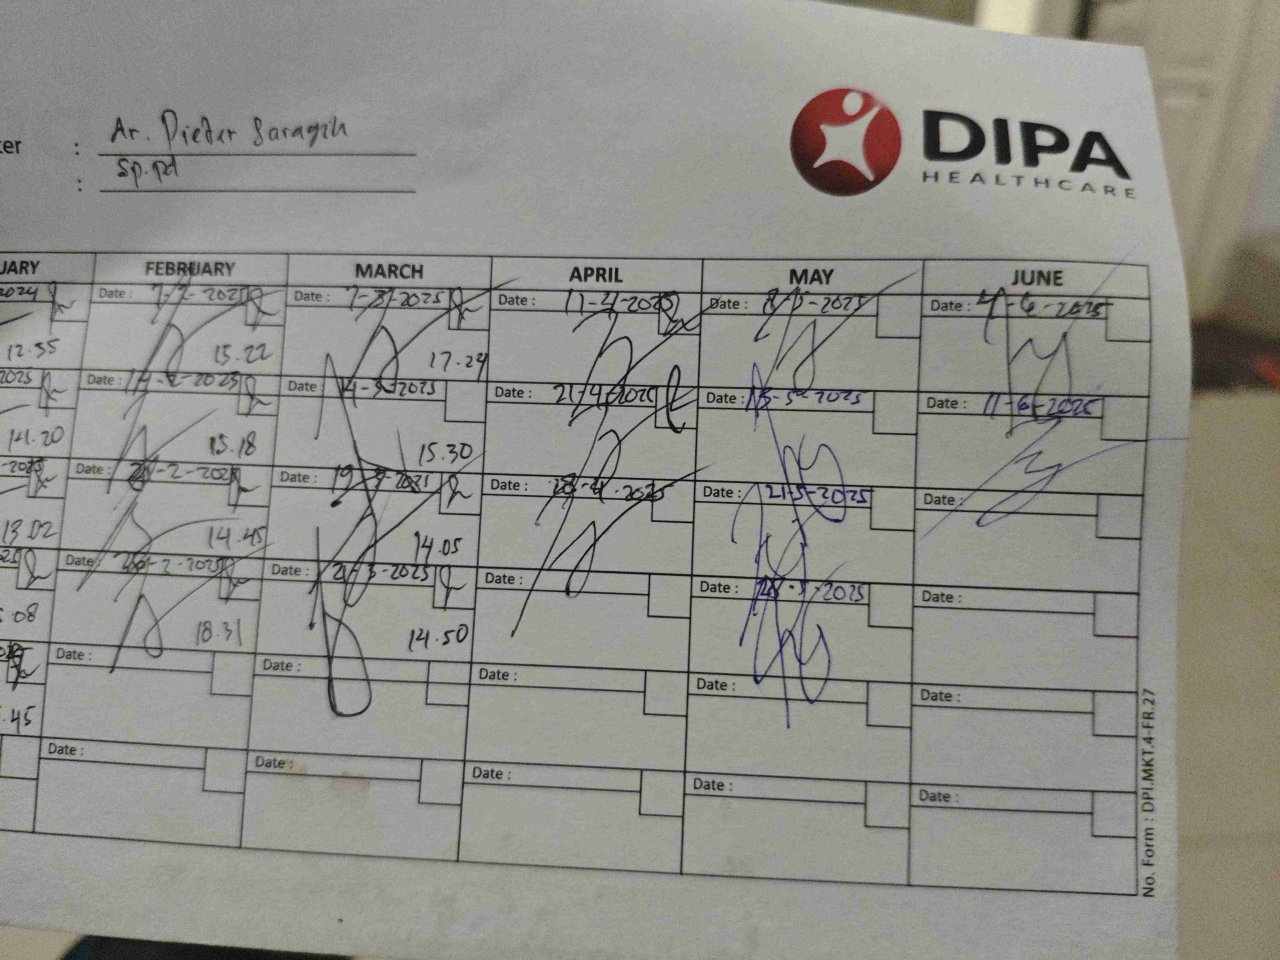 DIPA
HEALTHCARE
ter : Dr. Pieter Saragih
: Sp.pd
UARY FEBRUARY MARCH APRIL MAY JUNE
2024 Date : 7-2-2025 Date : 7-3-2025 Date : 11-4-2025 Date : 8-5-2025 Date : 4-6-2025
12.55 15.22 17.24
2025 Date : 14-2-2025 Date : 14-3-2025 Date : 21-4-2025 Date : 15-5-2025 Date : 11-6-2025
14.20 15.18 15.30
-2025 Date : 21-2-2025 Date : 19-3-2025 Date : 28-4-2025 Date : 21-5-2025 Date :
13.02 14.45 14.05
025 Date : 26-2-2025 Date : 21-3-2025 Date : Date : 28-5-2025 Date :
.08 18.31 14.50
Date : Date : Date : Date : Date :
.45
Date : Date : Date : Date : Date :
No. Form : DPI.MKT.4-FR.27